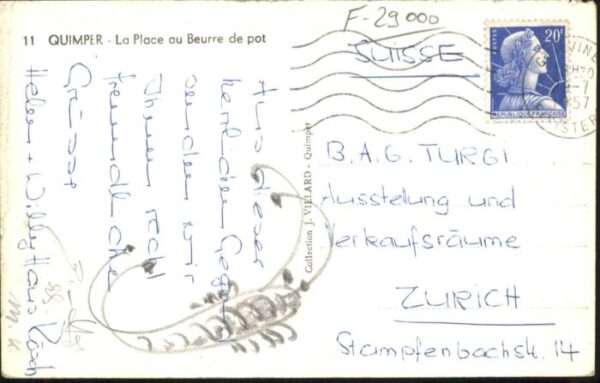 11 QUIMPER - La Place au Beurre de pot
F-29000
SUISSE
POSTES
20F
REPUBLIQUE FRANÇAISE
57
Aus dieser
herrlichen Gegend
senden wir
Ihnen recht
freundliche
Grüsse
Helen + Willy Haus
Collection J. VILLARD - Quimper
B.A.G. TURGI
Ausstellung und
Verkaufsräume
ZURICH
Stampfenbachstr. 14